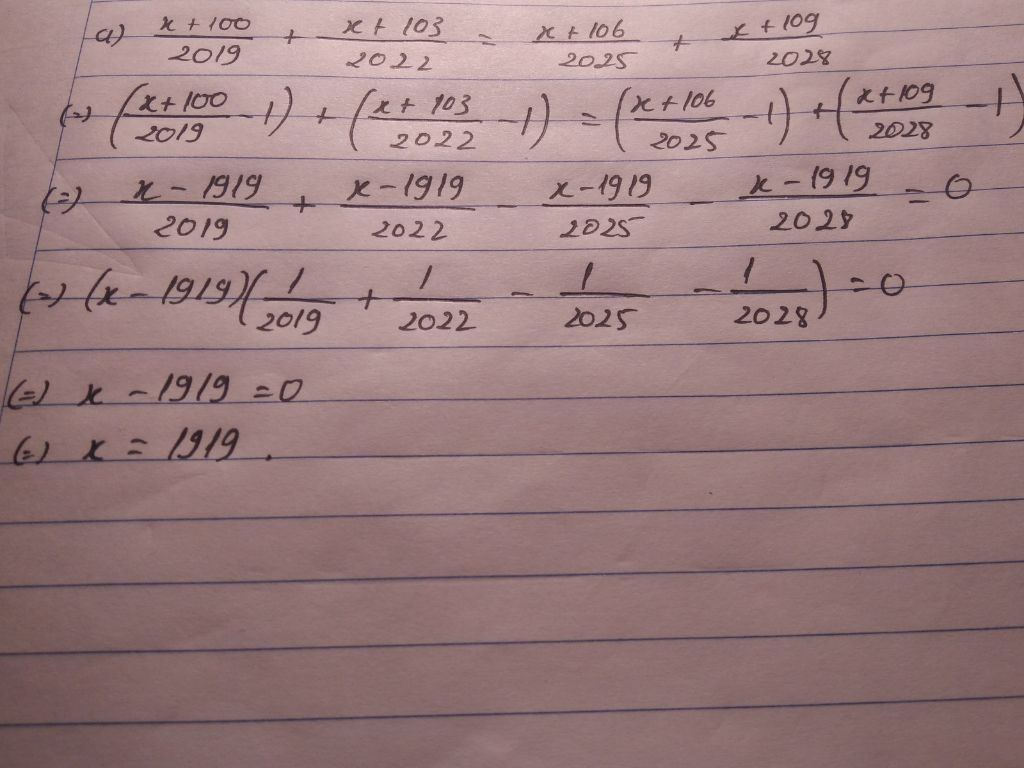 a) \frac{x+100}{2019} + \frac{x+103}{2022} = \frac{x+106}{2025} + \frac{x+109}{2028}
(=) (\frac{x+100}{2019} - 1) + (\frac{x+103}{2022} - 1) = (\frac{x+106}{2025} - 1) + (\frac{x+109}{2028} - 1)
(=) \frac{x-1919}{2019} + \frac{x-1919}{2022} - \frac{x-1919}{2025} - \frac{x-1919}{2028} = 0
(=) (x-1919)(\frac{1}{2019} + \frac{1}{2022} - \frac{1}{2025} - \frac{1}{2028}) = 0
(=) x - 1919 = 0
(=) x = 1919.